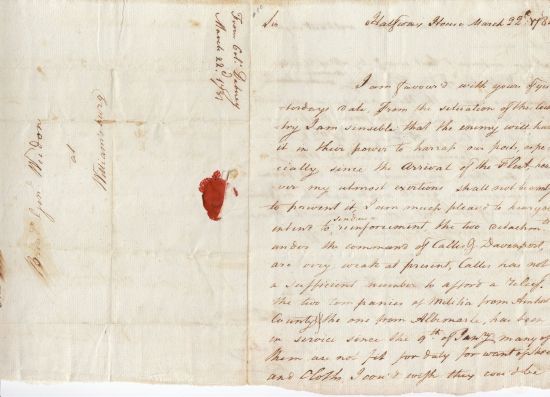 From Col. Dabney
March 22d. 1781
Brig. Genl Weedon
at
Williamsburg
Sir
Halfway House March 22d 178
I am favour'd with yours of yes
terdays date, from the situation of the Coun
try I am sensible that the enemy will have
it in their power to harrass our post, espe
cially, since the Arrival of the Fleet, how
ever my utmost exertions shall not be wanting
to prevent it, I am much pleas'd to hear you
intend to send me a reinforcement, the two detachmts
under the command of Callis & Davenport,
are very weak at present, Callis has not
a sufficient number to afford a relief.
the two companies of Militia from Amherst
County, & the one from Albemarle, has been
in service since the 9th of Jany. many of
them are not fit for duty for want of shoes
and Cloths I cou'd wish they cou'd be